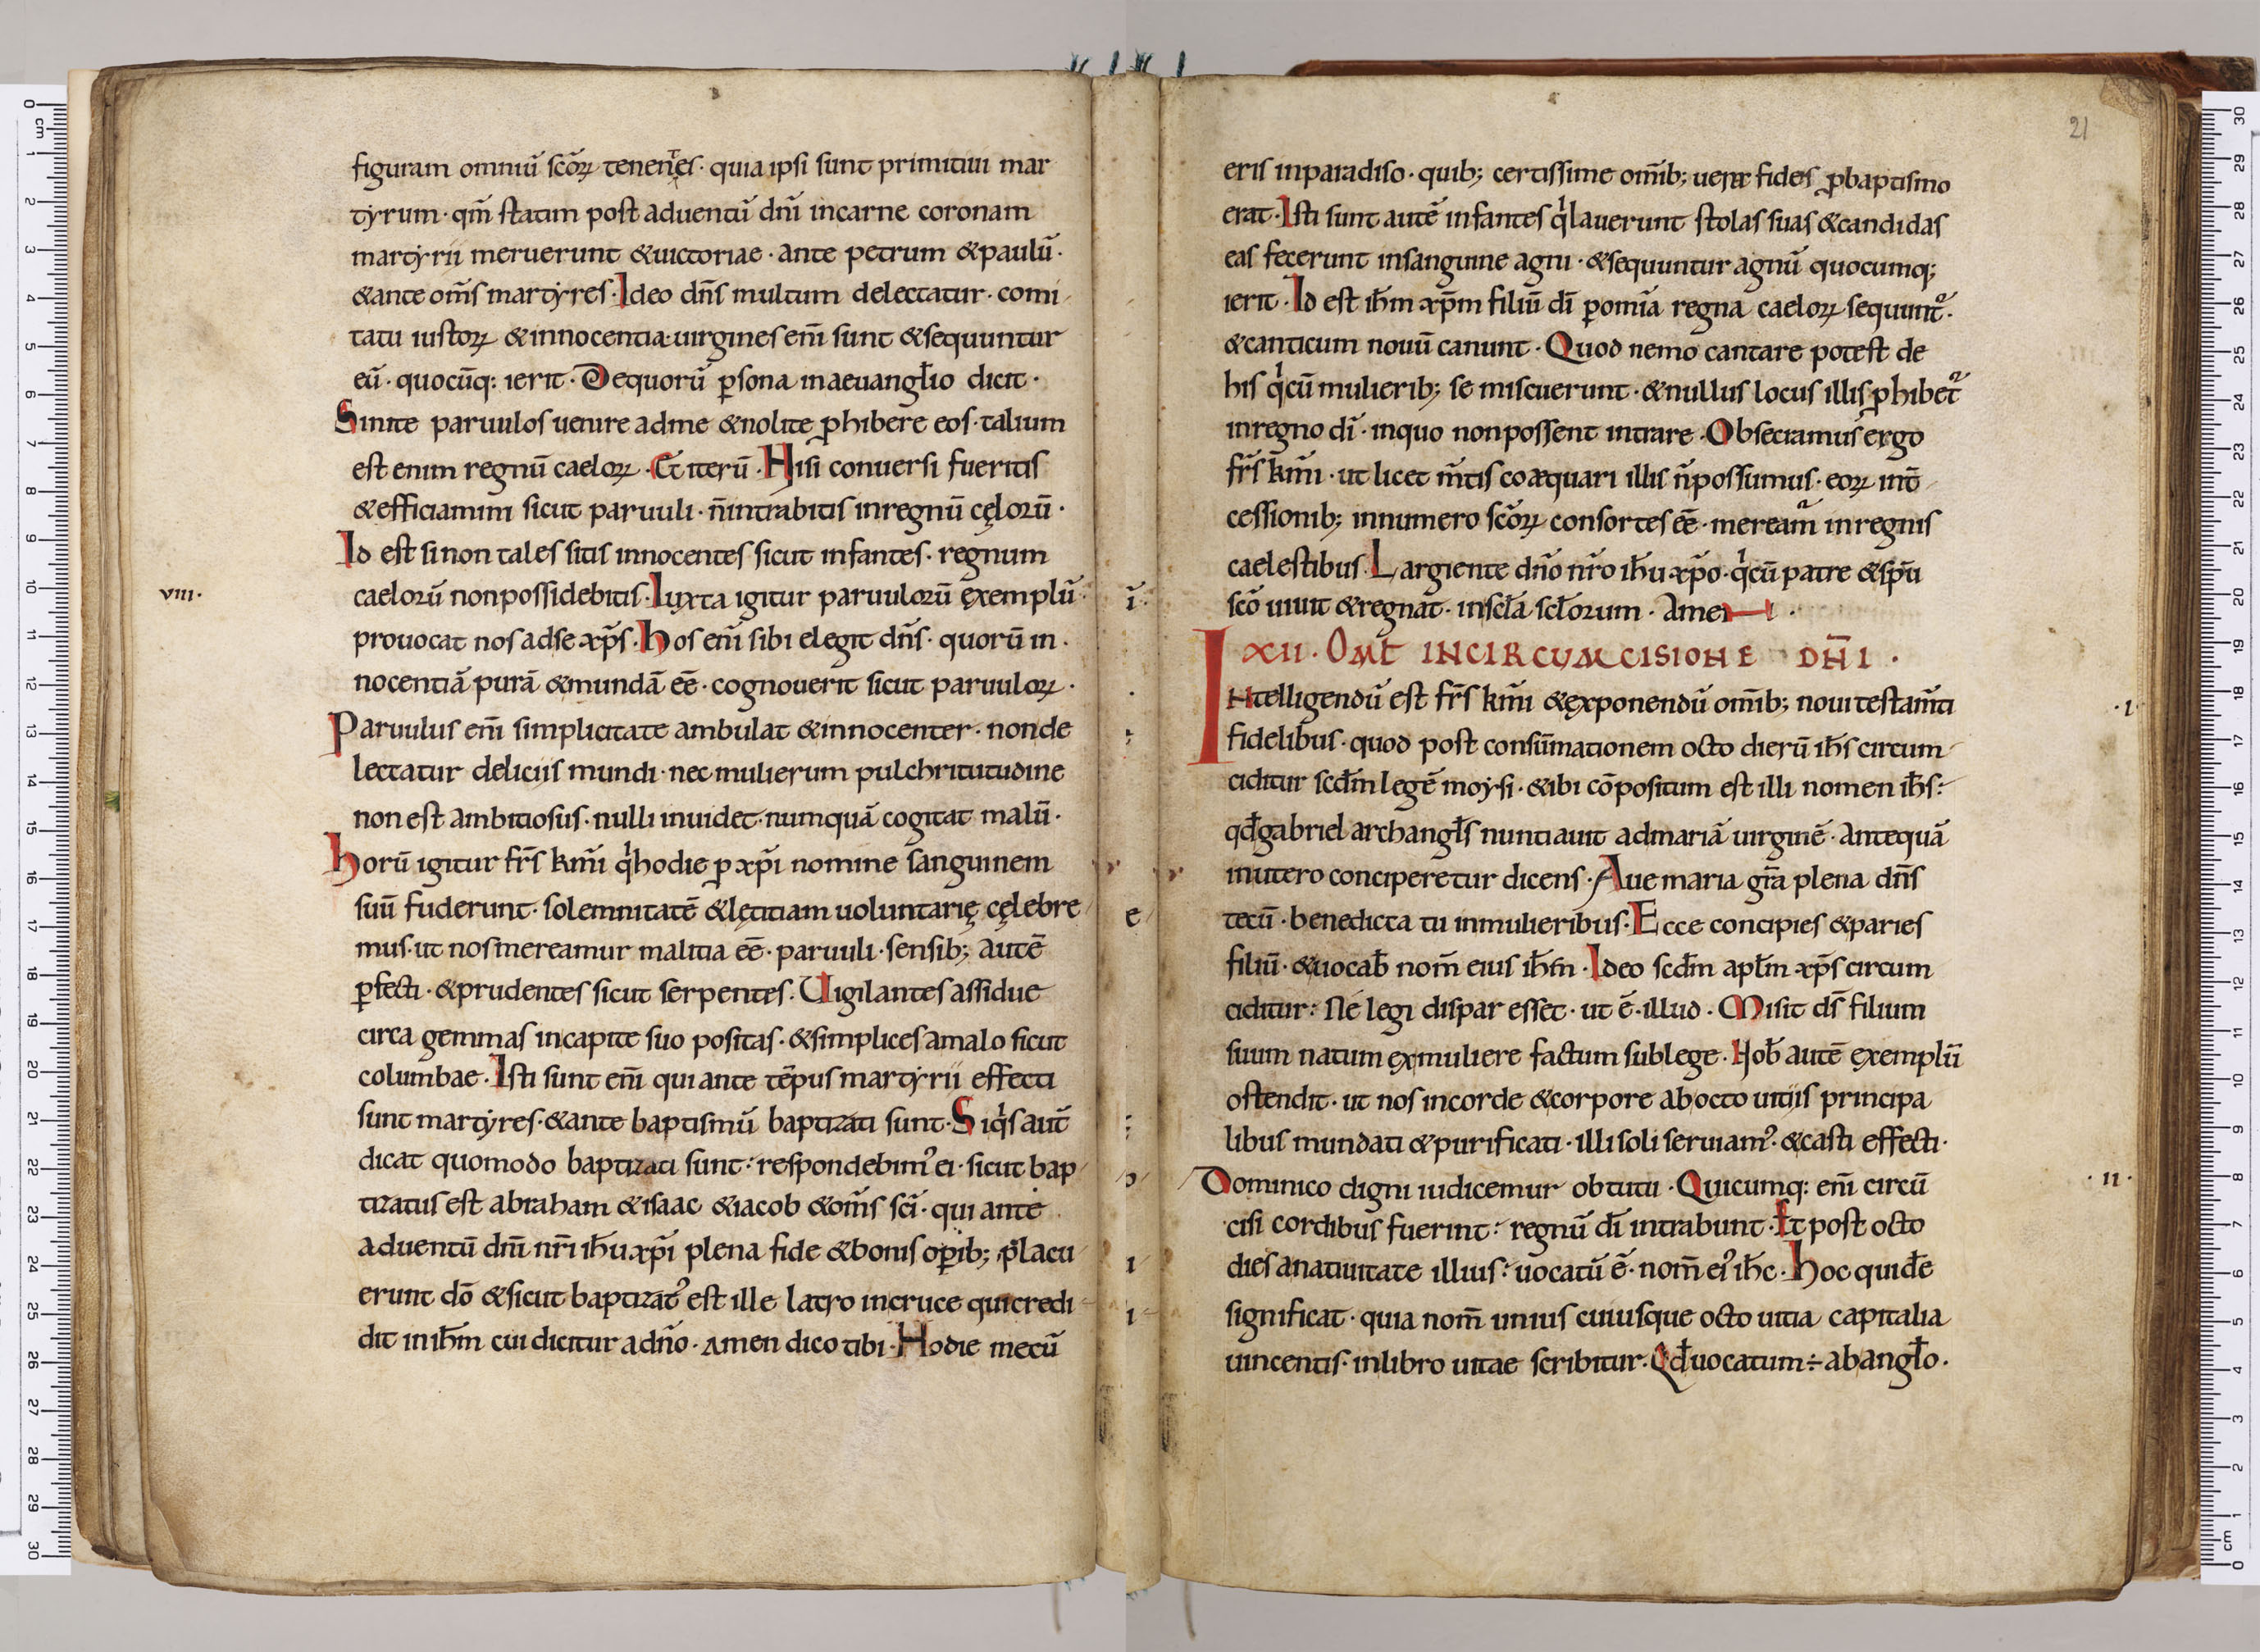 figuram omniū scōꝝ tenentes · quia ipsi sunt primitiui mar
tyrum · qm̄ statim post aduentū dn̄i incarne coronam
martyrii meruerunt &uictoriae · ante petrum &paulū ·
&ante om̄s martyres · Ideo dn̄s multum delectatur · comi
tatu iustoꝝ &innocentia · uirgines enī sunt &sequuntur
eū · quocūq: ierit · Dequorū ꝑsona inaeuangƚio dicit ·
Sinite paruulos uenire adme &nolite ꝓhibere eos · talium
est enim regnū caeloꝝ · Et iterū · Nisi conuersi fueritis
&efficiamini sicut paruuli · n̄intrabitis inregnū cęlorū ·
Id est sinon tales sitis innocentes sicut infantes · regnum
caelorū nonpossidebitis · Iuxta igitur paruulorū exemplū ·
viii ·
prouocat nos adse xp̄s · hos enī sibi elegit dn̄s · quorū in ·
nocentiā purā &mundā eē · cognouerit sicut paruuloꝝ ·
Paruulus enī simplicitate ambulat &innocenter · nonde
lectatur deliciis mundi · nec mulierum pulchritutudine
non est ambitiosus · nulli inuidet · numquā cogitat malū ·
horū igitur fr̄s km̄i qͥhodie ꝑ xp̄i nomine sanguinem
suū fuderunt · solemnitatē &lętitiam uoluntarię cęlebre
mus · ut nos mereamur malitia eē · paruuli · sensib; autē
ꝑfecti · &prudentes sicut serpentes · Uigilantes assidue
circa gemmas incapite suo positas · &simplices amalo sicut
columbae · Isti sunt enī qui ante tēpus martyrii effecti
sunt martyres · &ante baptismū baptizati sunt · Siqͥs aut̄
dicat quomodo baptizati sunt : respondebimꝰ ei · sicut bap
tizatus est abraham &isaac &iacob &om̄s sc̄i · qui ante
aduentū dn̄i nr̄i ih̄u xp̄i plena fide &bonis oꝑib; placu
erunt dō &sicut baptizatꝰ est ille latro incruce qui credi
dit inih̄m cui dicitur adn̄o · amen dico tibi · Hodie mecū
21
eris inparadiso · quib; certissime om̄ib; uera fides ꝑbaptismo
erat · Isti sunt autē infantes qͥlauerunt stolas suas &candidas
eas fecerunt insanguine agni · &sequuntur agnū quocumq;
ierit · Id est ih̄m xp̄m filiū dī ꝑomīa regna caeloꝝ sequunt᷑ ·
&canticum nouū canunt · Quod nemo cantare potest de
his qͥcū mulierib; se miscuerunt · &nullus locus illis ꝓhibet᷑
inregno dī · inquo nonpossent intrare · Obsecramus ergo
fr̄s km̄i · ut licet m̄tis coæquari illis n̄possumus · eoꝝ int̄
cessionib; innumero scōꝝ consortes eē · mereamᷣ inregnis
caelestibus · Largiente dn̄o nr̄o ih̄u xp̄o · qͥcū patre &sp̄u
scō uiuit &regnat · insc̄ƚa sc̄ƚorum · Amen ·
XII · OMƚ INCIRCUMCISIONE DN̄I ·
Intelligendū est fr̄s km̄i &exponendū om̄ib; noui testam̄ti
· i ·
fidelibus · quod post consūmationem octo dierū ih̄s circum
ciditur scdm̄ legē moysi · &ibi cōpositum est illi nomen ih̄s :
qđ gabriel archangƚs nuntiauit admariā uirginē · antequā
inutero conciperetur dicens · Aue maria gr̄a plena dn̄s
tecū · benedicta tu inmulieribus · Ecce concipies &paries
filiū · &uocaƀ nom̄ eius ih̄m · Ideo scdm̄ apƚm xp̄s circum
ciditur : Ne legi dispar esset · ut ē · illud · Misit d̄s filium
suum natum exmuliere factum sublege · Noƀ autē exemplū
ostendit · ut nos incorde &corpore abocto uitiis principa
libus mundati &purificati · illi soli seruiamꝰ · &casti effecti ·
Dominico digni iudicemur obtutu · Quicumq: enī circū
· ii ·
cisi cordibus fuerint : regnū dī intrabunt · Et post octo
dies anatiuitate illius : uocatū ē · nom̄ eiꝰ ih̄c · hoc quidē
significat · quia nom̄ unius cuiusque octo uitia capitalia
uincentis · inlibro uitae scribitur · Qđ uocatum ÷ abangƚo ·